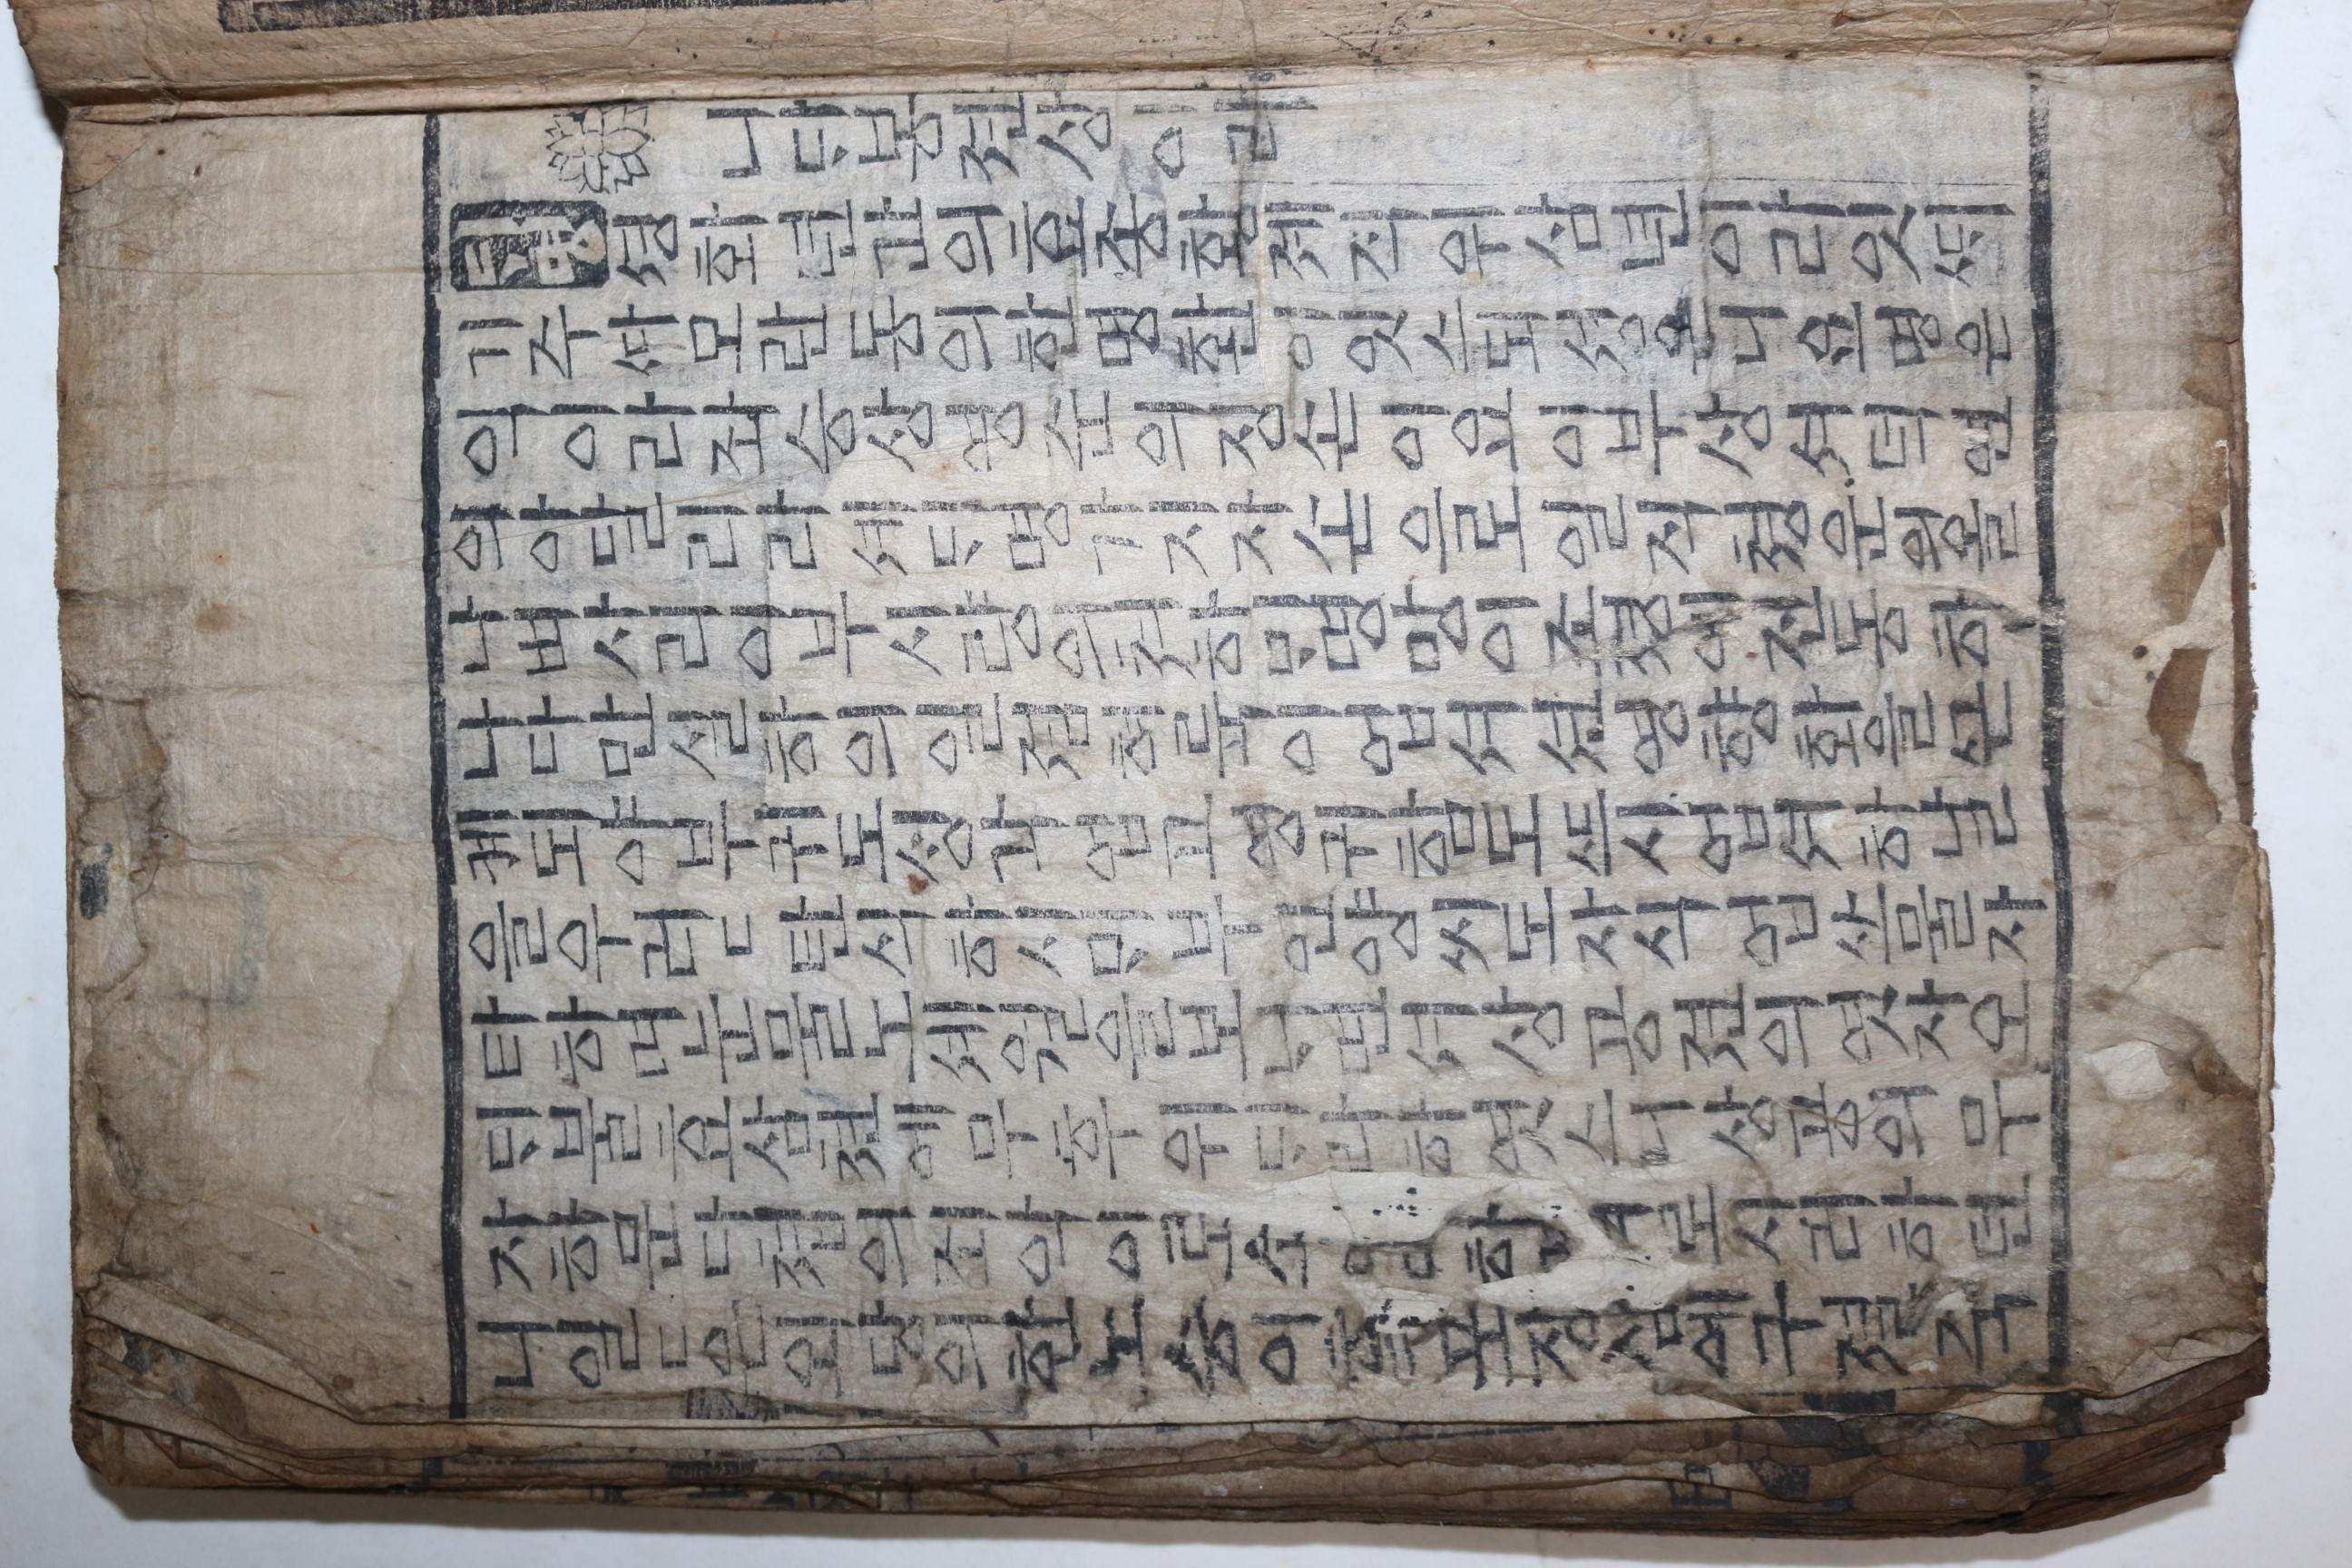 니ᄃᆡ봉젼상이라
ᄃᆡ명셩화년간의효종황졔직위삼년이라잇ᄯᆡ
기주ᄯᅡ모란동의한명환이잇스되셩은니요명은
익이라좌승상영준의징손이요이부상셔덕연
의아달리라셰ᄃᆡ명가지자손으로일직쳥운의올
나벼사리이부시랑의쳐하ᄆᆡ명망이조졍에진동하
나다만실하의일졈혀륙이업셔션영향화을ᄭᅳᆫ
케되야부귀도ᄉᆡᆼ각업고영귀함도ᄯᅳ시업셔하날
을우러탄식하시ᄆᆡ부인양씨도자식업사물자
타하며눈물노셰월을보ᄂᆡ며셔상공젼의엿자오
ᄃᆡ불효삼쳔에무후위ᄃᆡ라하엿스니상공의무
자하문다쳡의죄악이로소하로시러하던
니일은외당의한노승이흑포장삼에구졀죽